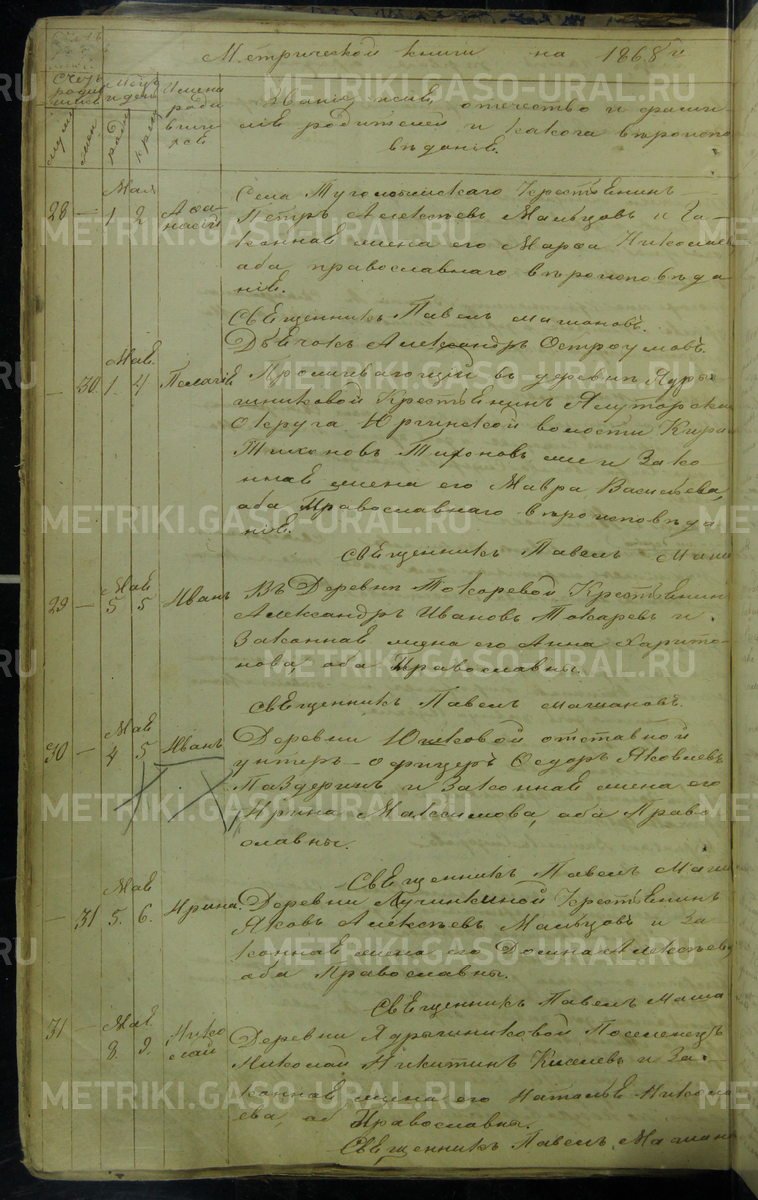 Метрической книги на 1868 г.
Имена роди вшихся
Звание, имя, отечество и фами
лія родителей и какого вероиспо
веданія.
Маія
Села Туголотского Крестьянинъ
28 — 1 2 Афа
насій
Петръ Алексѣевъ Мальцовъ и За
конная жена его Марфа Николаев
оба православнаго вѣроисповѣда
нія.
Священникъ Павелъ Машановъ.
Дьячокъ Александръ Остроумовъ.
Маія
— 30 1. 4 Пелагія
Проживающій въ деревни Ядры
шниковой Крестьянинъ Ялуторскаго
Округа Юргинской волости
Тихоновъ и Зако
нная жена его Мавра Васильева,
оба Православнаго вѣроисповѣда
нія.
Священникъ Павелъ Маша
Маія
29 — 5 5 Иванъ
Въ Деревни Токаревой Крестьянинъ
Александръ Ивановъ Токаревъ и
Законная жена его Анна Харито
нова, оба Православны.
Священникъ Павелъ Машановъ.
Маія
30 — 4. 5 Иванъ
Деревни Юшковой отставной
унтеръ-офицеръ Федоръ Яковлевъ
Паздеринъ и Законная жена его
Ирина Максимова, оба Право
славны.
Священникъ Павелъ Маша
Маія
— 31 5. 6. Ирина
Деревни Лучинкиной Крестьянинъ
Яковъ Алексѣевъ Мальцовъ и За
конная жена его Домна Алексѣева
оба Православны.
Священникъ Павелъ Маша
Маія
31 — 8. 9. Нико
лай
Деревни Ядрышниковой Поселенецъ
Николай Никитинъ Киселевъ и За
конная жена его Наталья Никола
ева об Православны.
Священникъ Павелъ Машано
METRIKI.GASO-URAL.RU